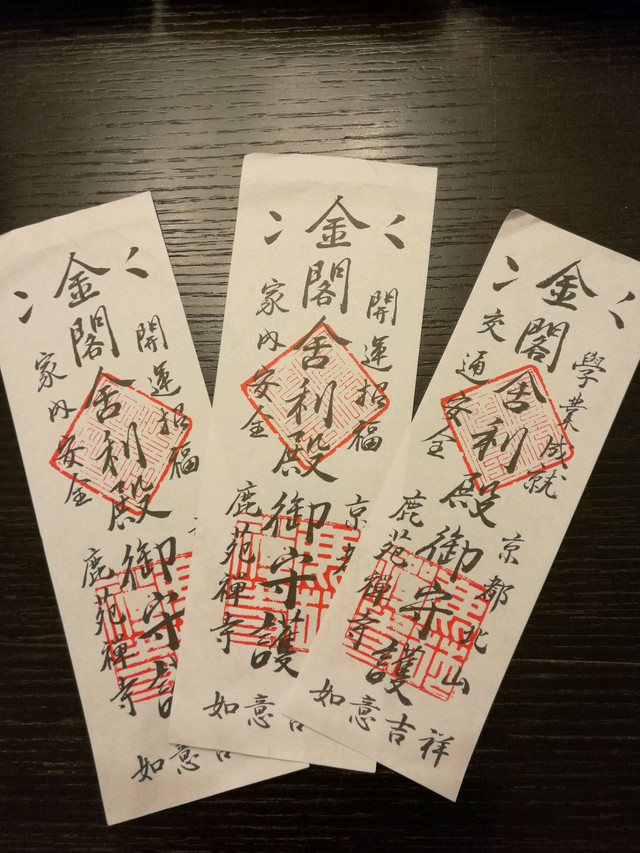 開運招福
金閣舍利殿御守
家内安全
鹿苑禪寺
如意
開運招福
京
金閣舍利殿御守護
家内安全
鹿苑禪寺
如意
學業成就
京都北山
金閣舍利殿御守護
交通安全
鹿苑禪寺
如意吉祥